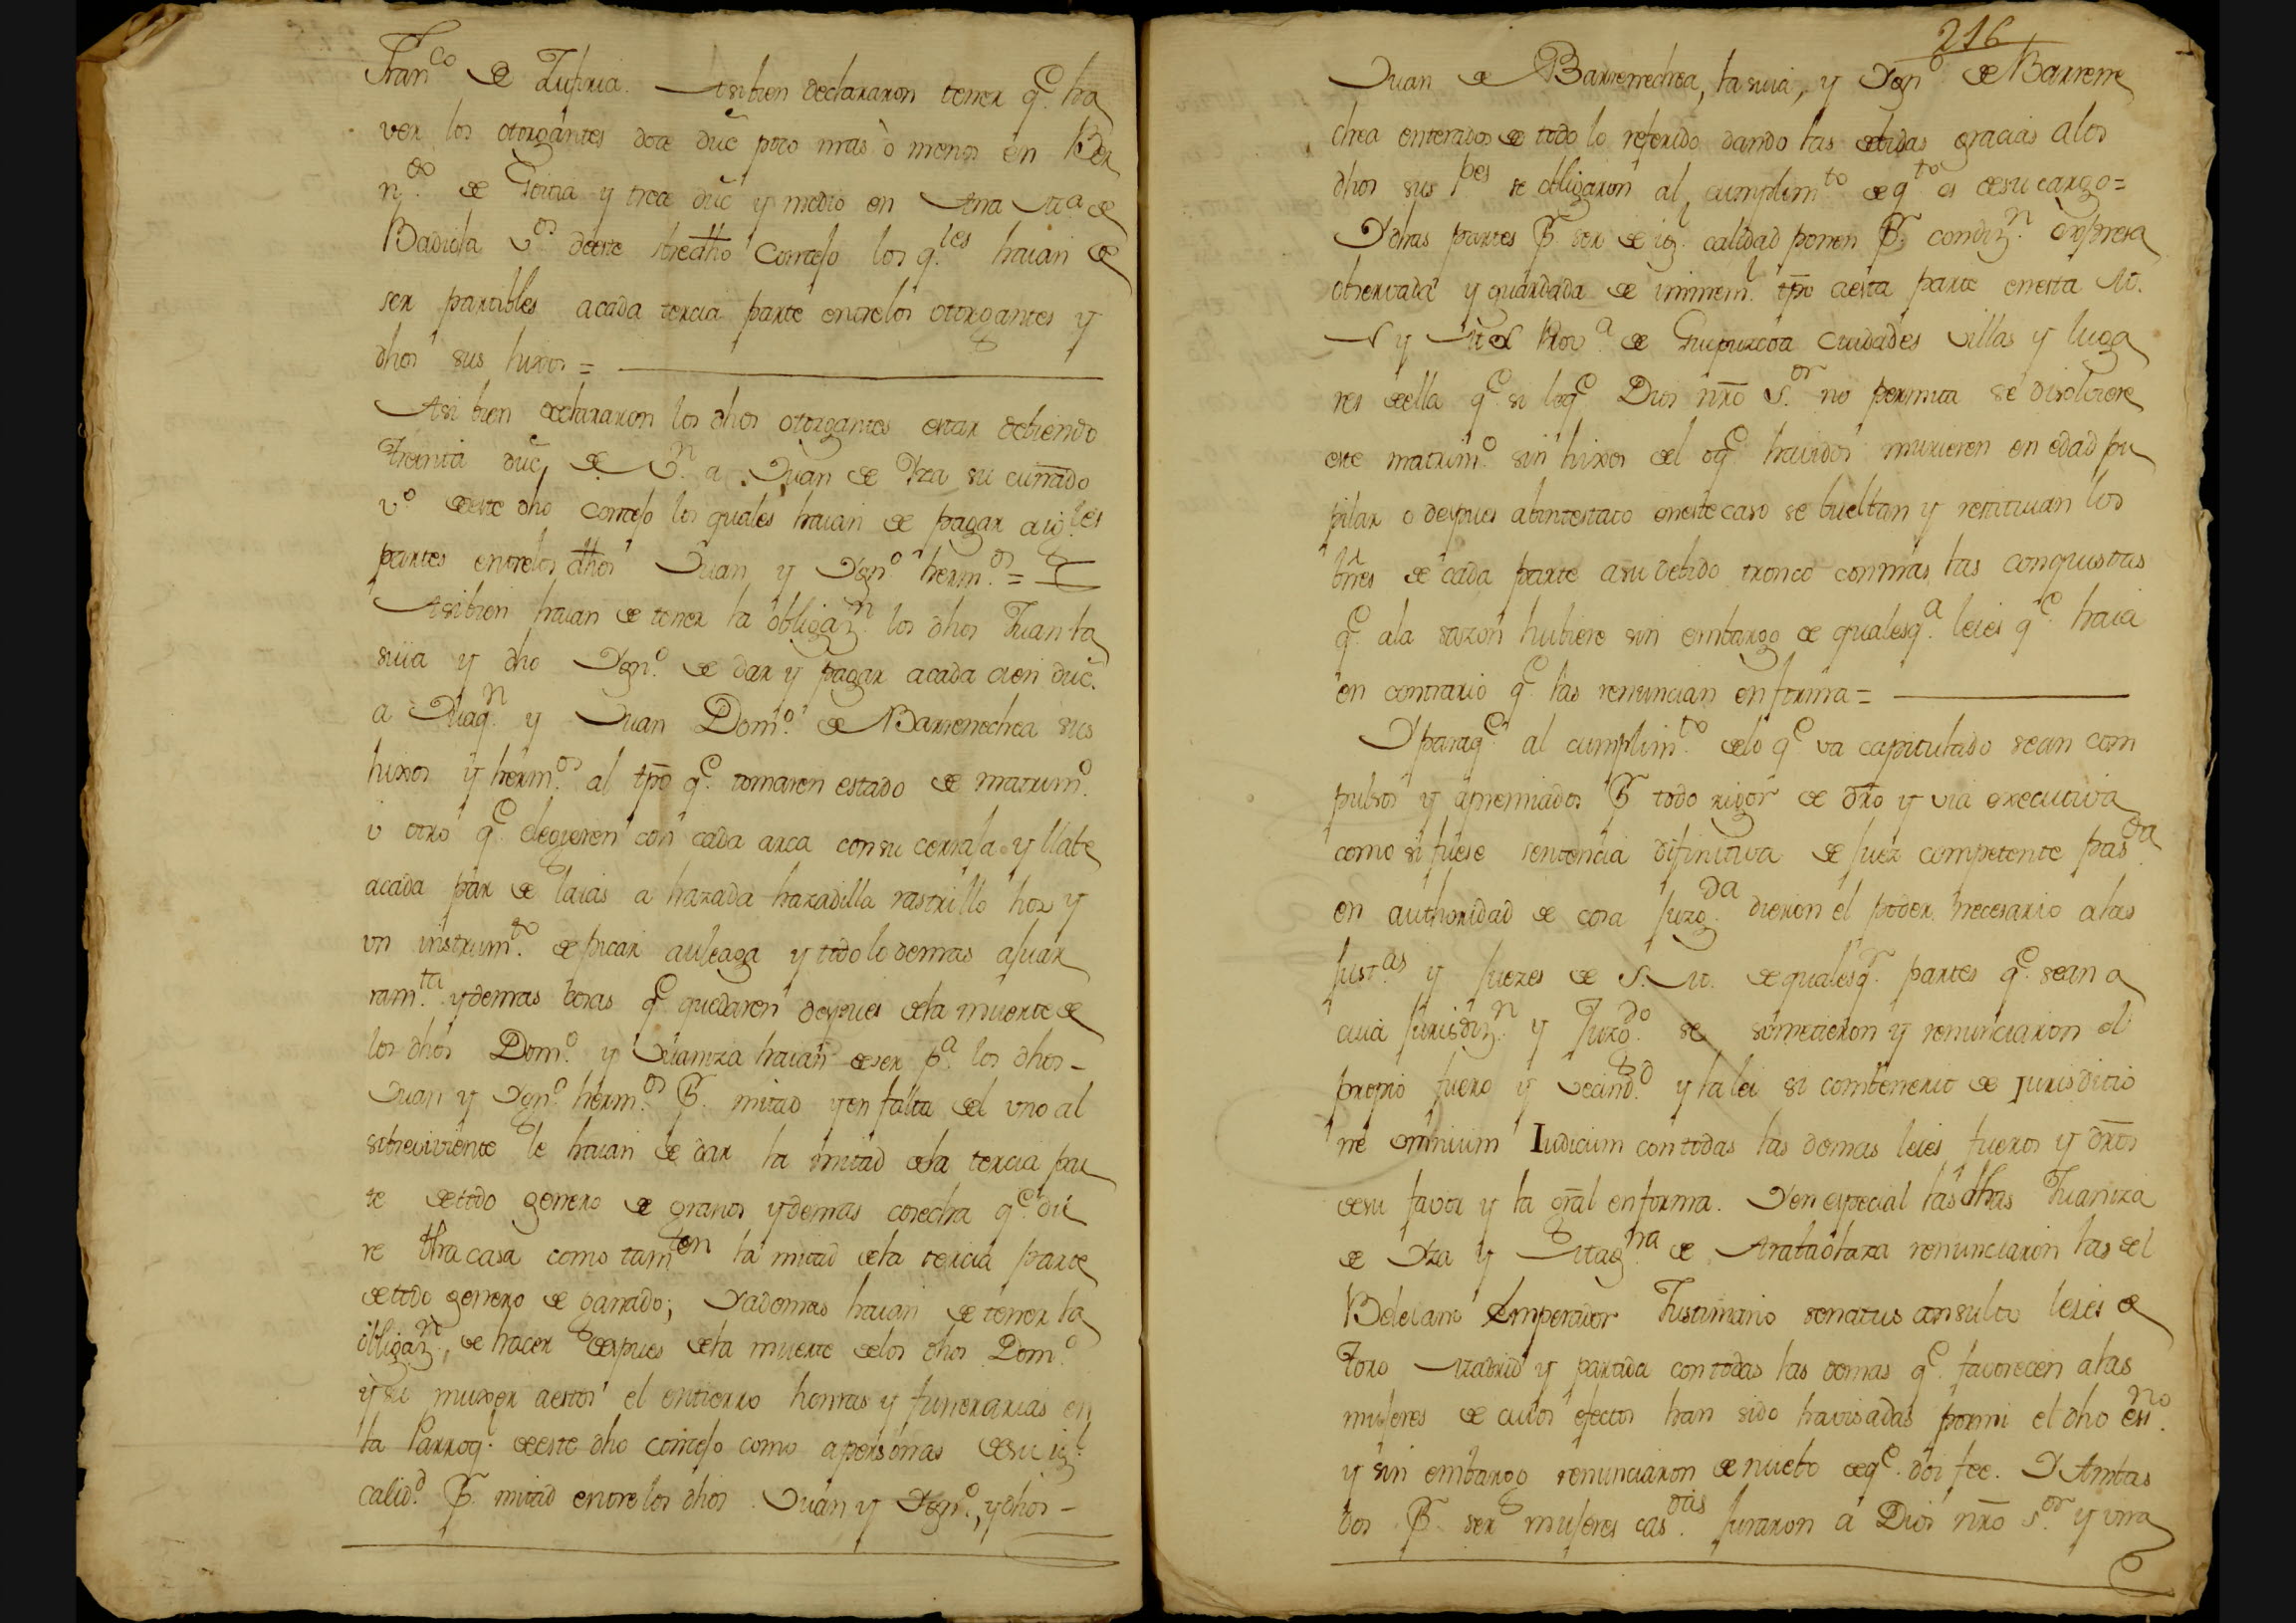 Fran.co de Zufiria. Asibien declararon tener q.e ha
ver los otorgantes doce duc poco mas ò menos en Ber
n.do de Goitia y trece duc y medio en Ana M.a de
Badiola v.os deeste stredho Concejo los q.les haian de
ser partibles acada tercia parte entrelos otorgantes y
dhos sus hixos =
Asi bien declararon los dhos otorgantes estar debiendo
treinta duc. de v.n a Juan de Yza su cuñado
v.o deeste dho concejo los quales haian de pagar a ig.les
partes entrelos dhos Juan y Ygn.o herm.os =
Asibien haian de tener la obligaz.n los dhos Juan la
suia y dho Ygn.o de dar y pagar acada cien duc.
a Juaq.n y Juan Dom.o de Barrenechea sus
hixos y herm.os al tpo q.e tomaren estado de matrim.o
ù otro q.e elegieren con cada arca con su cerraja y llabe
acada par de laias a hazada hazadilla rastrillo hoz y
un instrum.to de picar auleaga y todo lo demas ajuar
ram.ta y demas cosas q.e quedaren despues dela muerte de
los dhos Dom.o y Juaniza haian deser p.a los dhos -
Juan y Ygn.o herm.os P.r mitad y en falta del uno al
sobreviviente le haian de dar la mitad dela tercia par
te detodo genero de granos y demas cosecha q.e die
re dha casa como tamb.en la mitad dela tercia parte
detodo genero de ganado; Yademas haian de tener la
obligaz.n, de hacer despues dela muerte delos dhos Dom.o
y su muxer aestos el entierro honras y funerarias en
la Parroq.l deeste dho concejo como a personas desu ig.l
calid.d P.r mitad entre los dhos Juan y Ygn.o, y dhos -
216
Juan de Barrenechea, la suia, y Ygn.o de Barrene
chea enterados de todo lo referido dando las debidas gracias alos
dhos sus p.es se obligaron al cumplim.to de q.to es desu cargo =
Ydhas partes P.r ser de ig.l calidad ponen P.r condiz.n expresa
obserbada y guardada de inmem.l tpo aesta parte enesta M.
N y M L Prov.a de Guipuzcoa Ciudades villas y luga
res deella q.e si loq.e Dios nro S.or no permita se disolviere
este matrim.o sin hixos ò el q.e havidos murieren en edad pu
pilar o despues abintestato eneste caso se buelban y restituian los
vnes de cada parte asu debido tronco conmas las conquistas
q.e ala sazon hubiere sin embargo de qualesq.a leies q.e haia
en contrario q.e las renuncian en forma =
Yparaq.e al cumplim.to delo q.e va capitulado sean com
pulsos y apremiados P.r todo rigor de dro y via executiva
como si fuese sentencia difinitiva de juez competente pas.da
en authoridad de cosa juzg.da dieron el poder necesario alas
just.as y juezes de S.M. de qualesq.r partes q.e sean a
cuia jurisdiz.n y Juzg.do se sometieron y renunciaron el
propio fuero y vecind.d y la lei si combenerit de jurisditio
ne omnium Iudicium con todas las demas leies fueros y dros
desu favor y la gral en forma. Yen especial las dhas Juaniza
de Yza y de Arataolaza renunciaron las del
Beleiano Emperador Justiniano senatus consulto leies de
Toro Madrid y partida con todas las demas q.e favorecen alas
mujeres de cuios efectos han sido havisadas pormi el dho ess.no
y sin embargo renunciaron de nuebo deq.e doi fee. Y Ambas
dos P.r ser mujeres cas.das juraron à Dios nro S.or y una